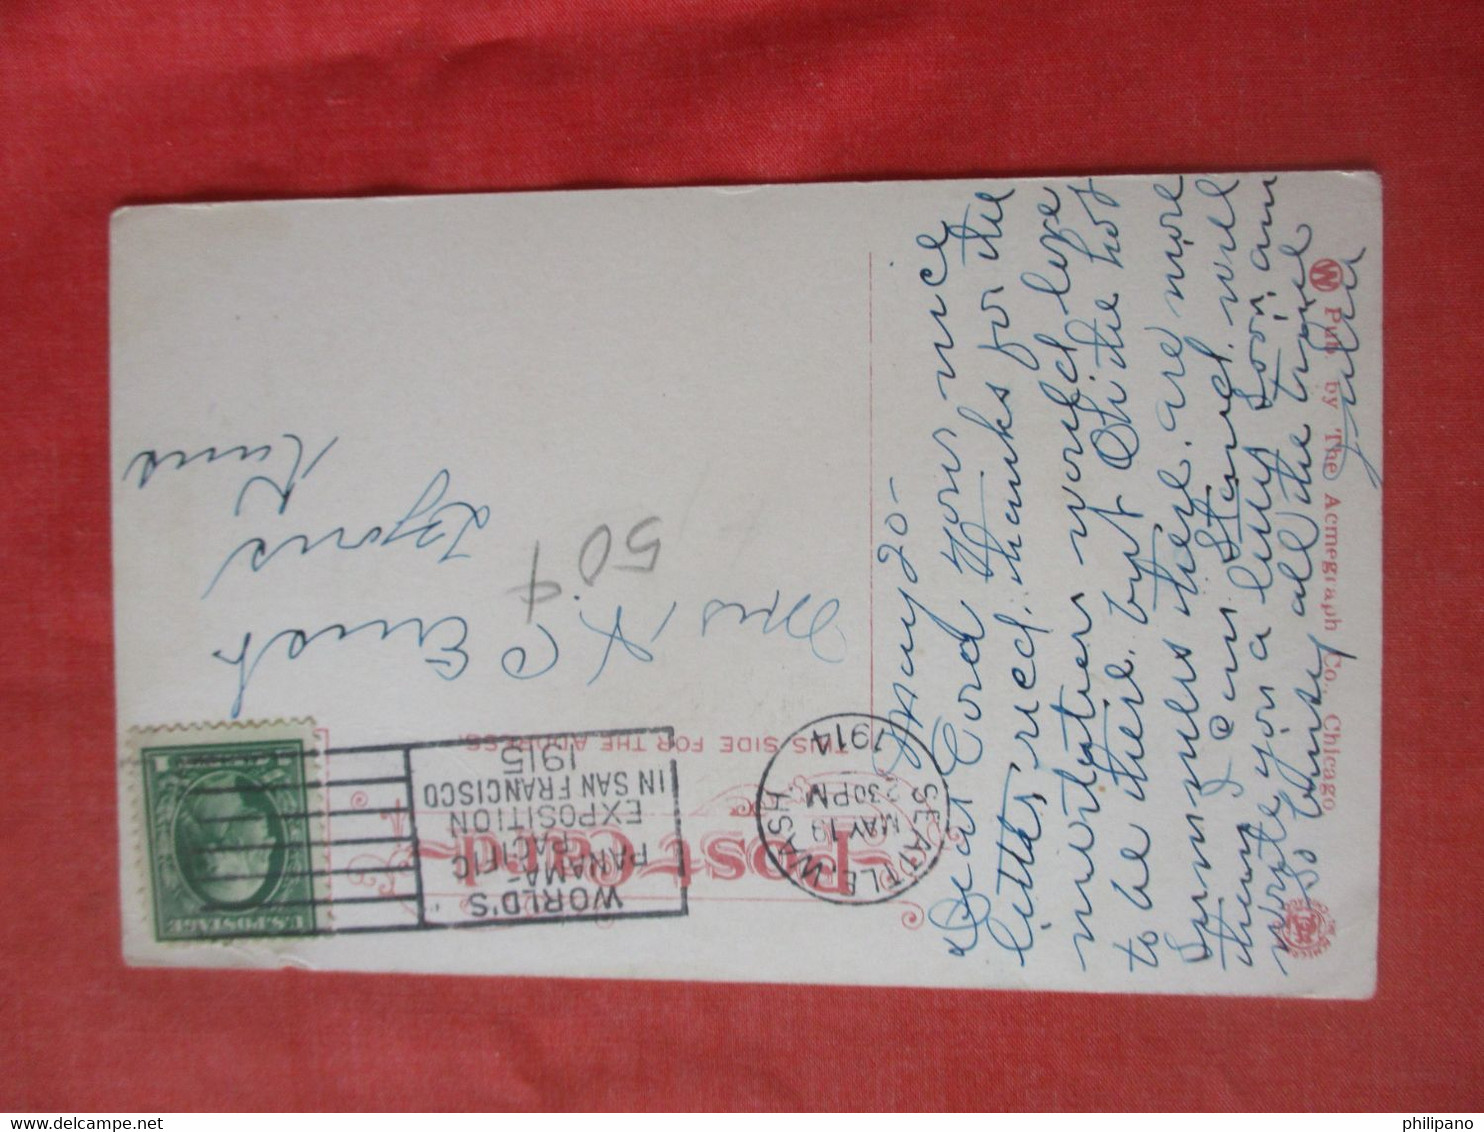 May 20-
Dear Cord your nice
letter, recd, thanks for the
invitation would love
to be there. but Oh! the hot
summers there. are more
than I can stand. will
write you a long soon, am
so busy all the time
Mrs
Ernst
Lyons
Kans
504
POST CARD
THIS SIDE FOR THE ADDRESS.
SEATTLE, WASH.
MAY 19
2 30 PM
1914
WORLD'S
PANAMA-PACIFIC
EXPOSITION
IN SAN FRANCISCO
1915
U.S. POSTAGE
1
W Pub. by The Acmegraph Co., Chicago
philipano